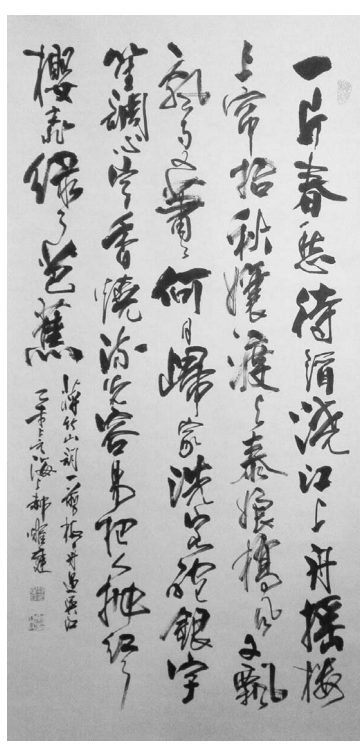 一片春愁待酒澆江上舟搖樓
上帘招秋孃渡與泰娘橋風又飄
々雨又蕭々何日歸家洗客袍銀字
笙調心字香燒流光容易把人拋紅了
櫻桃綠了芭蕉
蔣竹山詞一剪梅舟過吳江